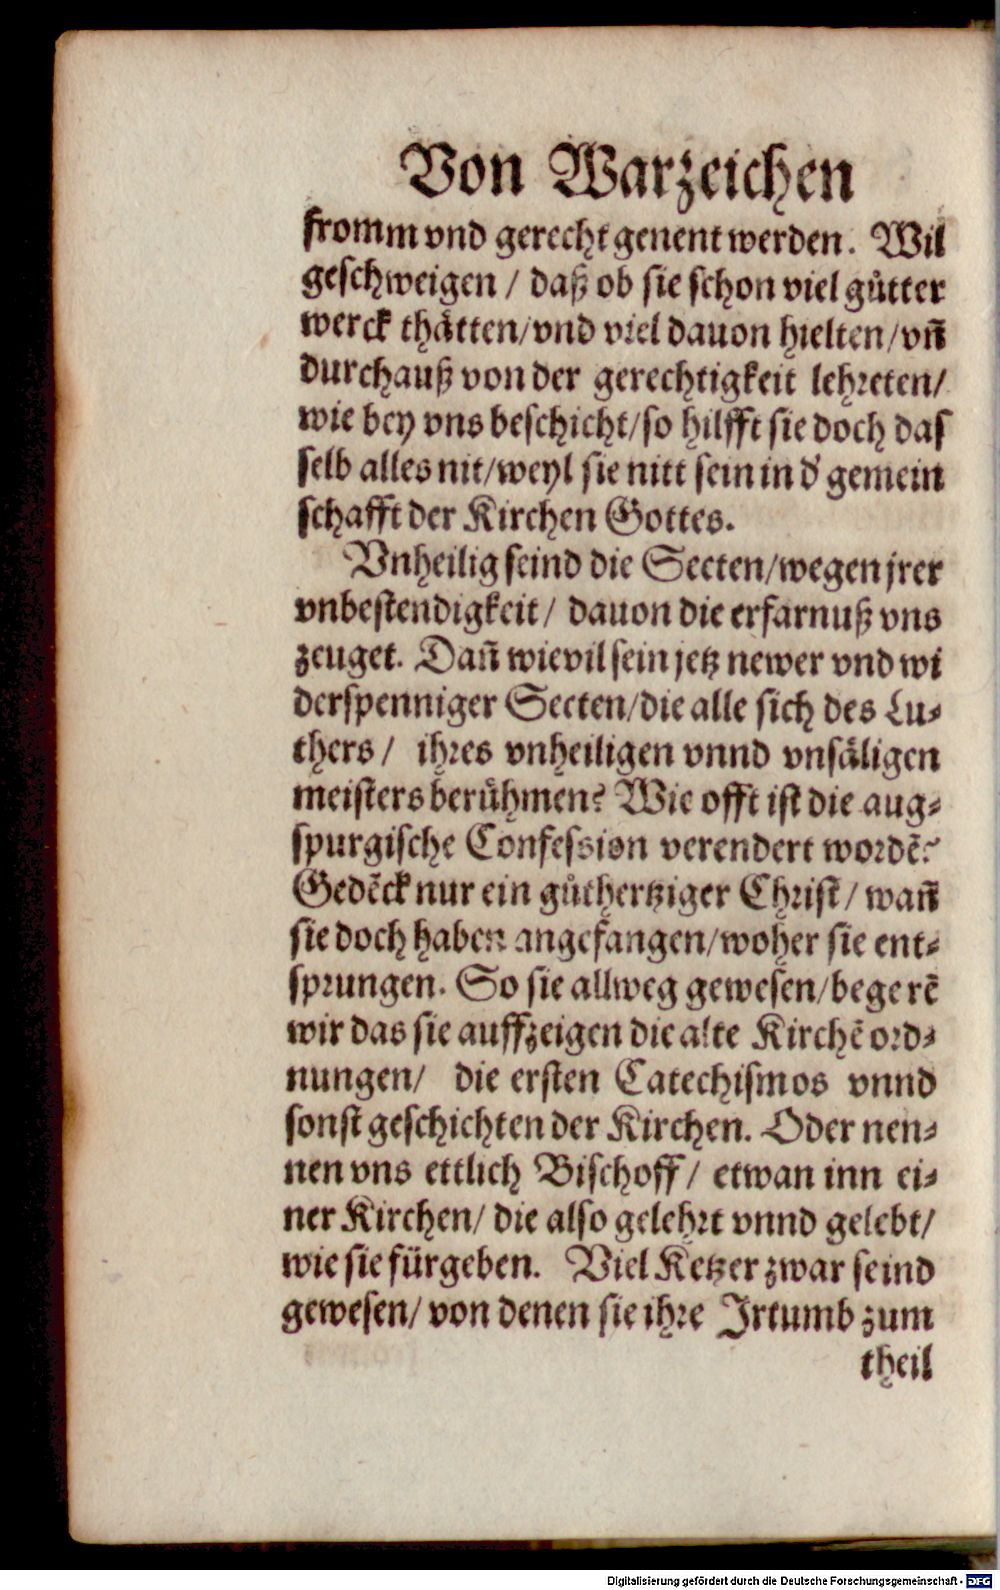 Von Warzeichen
fromm vnd gerecht genent werden. Wil
geschweigen / daß ob sie schon viel gůtter
werck thåtten/vnd viel dauon hielten/vñ
durchauß von der gerechtigkeit lehreten/
wie bey vns beschicht/so hilfft sie doch das
selb alles nit/weyl sie nitt sein in d' gemein
schafft der Kirchen Gottes.
Vnheilig seind die Secten/wegen jrer
vnbestendigkeit/ dauon die erfarnuß vns
zeuget. Dañ wievil sein jetz newer vnd wi
derspenniger Secten/die alle sich des Lu⸗
thers / ihres vnheiligen vnnd vnsåligen
meisters berůhmen? Wie offt ist die aug⸗
spurgische Confession verendert wordẽ?
Gedẽck nur ein gůthertziger Christ/ wañ
sie doch haben angefangen/woher sie ent⸗
sprungen. So sie allweg gewesen/begerẽ
wir das sie auffzeigen die alte Kirchẽ ord⸗
nungen/ die ersten Catechismos vnnd
sonst geschichten der Kirchen. Oder nen⸗
nen vns ettlich Bischoff/ etwan inn ei⸗
ner Kirchen/ die also gelehrt vnnd gelebt/
wie sie fürgeben. Viel Ketzer zwar seind
gewesen/ von denen sie ihre Jrtumb zum
theil
Digitalisierung gefördert durch die Deutsche Forschungsgemeinschaft - DFG